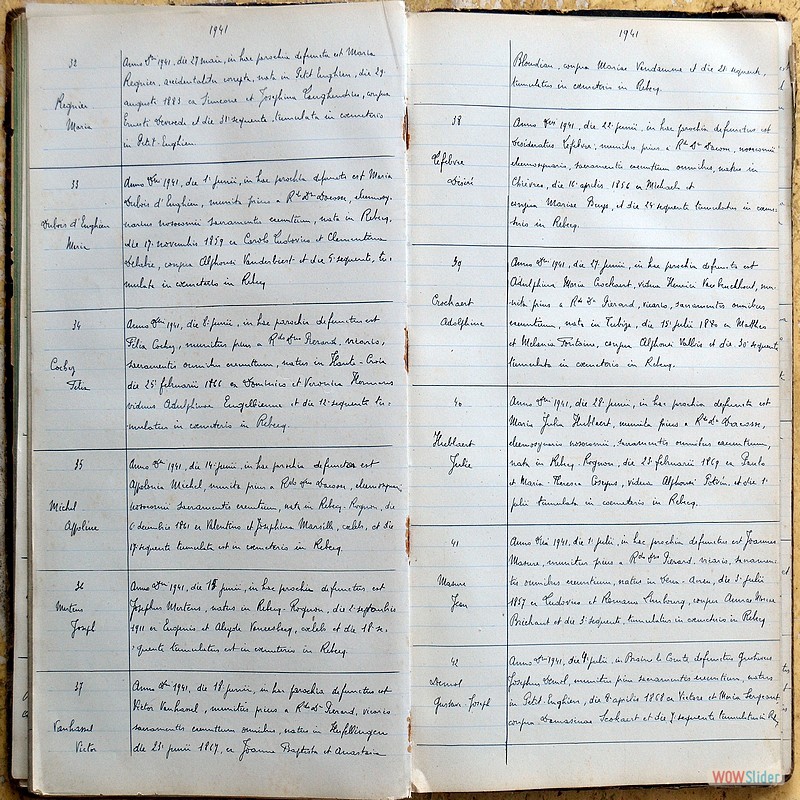 1941
32
Regnier
Maria
Anno Dni 1941, die 27 maii, in hac parochia defuncta est Maria
Regnier, accidentaliter correpta, nata in Petit Enghien, die 29
augusti 1883 ex Simeone et Josephina conjux
Ernesti et die 31 sequente tumulata in cœmeterio
in Petit-Enghien.
33
Dubois d'Enghien
Maria
Anno Dni 1941, die 1 junii, in hac parochia defuncta est Maria
Dubois d'Enghien, munita prius a Rdo Dno Dacosse, eleemosy-
nario nosocomii sacramentis exeuntium, nata in Rebecq,
die 17 novembris 1859 ex Carolo Ludovico et Clementina
Delabie, conjux Alphonsi Vanderbiest et die 5 sequente, tu-
mulata in cœmeterio in Rebecq
34
Félix
Anno Dni 1941, die 8 junii, in hac parochia defunctus est
Felix munitus prius a Rdo Dno Pierard, vicario,
sacramentis omnibus exeuntium, natus in Haute-Croix
die 25 februarii 1866 ex Dominico et Veronica
viduus Adulphinae et die 12 sequente tu-
mulatus in cœmeterio in Rebecq.
35
Michel
Appoline
Anno Dni 1941, die 14 junii, in hac parochia defuncta est
Appolonia Michel, munita prius a Rdo Dno Dacosse, eleemosynario
nosocomii sacramentis exeuntium, nata in Rebecq-Rognon, die
6 decembris 1861 ex Valentino et Josephina Marsille, caelebs, et die
17 sequente tumulata est in cœmeterio in Rebecq.
36
Mertens
Joseph
Anno Dni 1941, die junii, in hac parochia defunctus est
Josephus Mertens, natus in Rebecq-Rognon, die 2 septembris
1911 ex Eugenio et caelebs et die 18 se-
quente tumulatus est in cœmeterio in Rebecq.
37
Vanhassel
Victor
Anno Dni 1941, die 18 junii, in hac parochia defunctus est
Victor Vanhassel, munitus prius a Rdo Dno Pierard, vicario
sacramentis exeuntium omnibus, natus in Herfelingen
die 21 junii 1867, ex Joanne Baptista et Anastasia
1941
Blondiau, conjux Mariae Vandamme et die 21 sequente,
tumulatus in cœmeterio in Rebecq.
38
Lefebvre
Désiré
Anno Dni 1941, die 22 junii, in hac parochia defunctus est
Desideratus Lefebvre, munitus prius a Rdo Dno Dacosse, nosocomii
eleemosynario, sacramentis exeuntium omnibus, natus in
Chièvres, die 16 aprilis 1856 ex Michaele et
conjux Mariae et die 24 sequente tumulatus in cœme-
terio in Rebecq.
39
Crockaert
Adolphine
Anno Dni 1941, die 27 junii, in hac parochia defuncta est
Adulphina Maria Crockaert, vidua Henrici mu-
nita prius a Rdo Dno Pierard, vicario, sacramentis omnibus
exeuntium, nata in Tubize, die 15 julii 1880 ex Matthaeo
et Melania Fontaine, conjux Alphonsi et die 30 sequente
tumulata in cœmeterio in Rebecq.
40
Hublaert
Julie
Anno Dni 1941, die 28 junii, in hac parochia defuncta est
Maria Julia Hublaert, munita prius a Rdo Dno Dacosse,
eleemosynario nosocomii, sacramentis omnibus exeuntium,
nata in Rebecq-Rognon, die 23 februarii 1869 ex Paulo
et Maria-Theresa vidua Alphonsi Potvin, et die 1
julii tumulata in cœmeterio in Rebecq.
41
Masure
Jean
Anno Dni 1941, die 1 julii, in hac parochia defunctus est Joannes
Masure, munitus prius a Rdo Dno Pierard, vicario, sacramen-
tis omnibus exeuntium, natus in die 3 julii
1857 ex Ludovico et Romana Limbourg, conjux Annae Mariae
Brichaut et die 3 sequente, tumulatus in cœmeterio in Rebecq
42
Demol
Gustave-Joseph
Anno Dni 1941, die 4 julii, in Braine le Comte defunctus Gustavus
Josephus Demol, munitus prius sacramentis exeuntium, natus
in Petit-Enghien, die aprilis 1868 ex Victore et Maria Sergeant
conjux Damasinae et die 7 sequente tumulatus in Reb.
WOWSlider